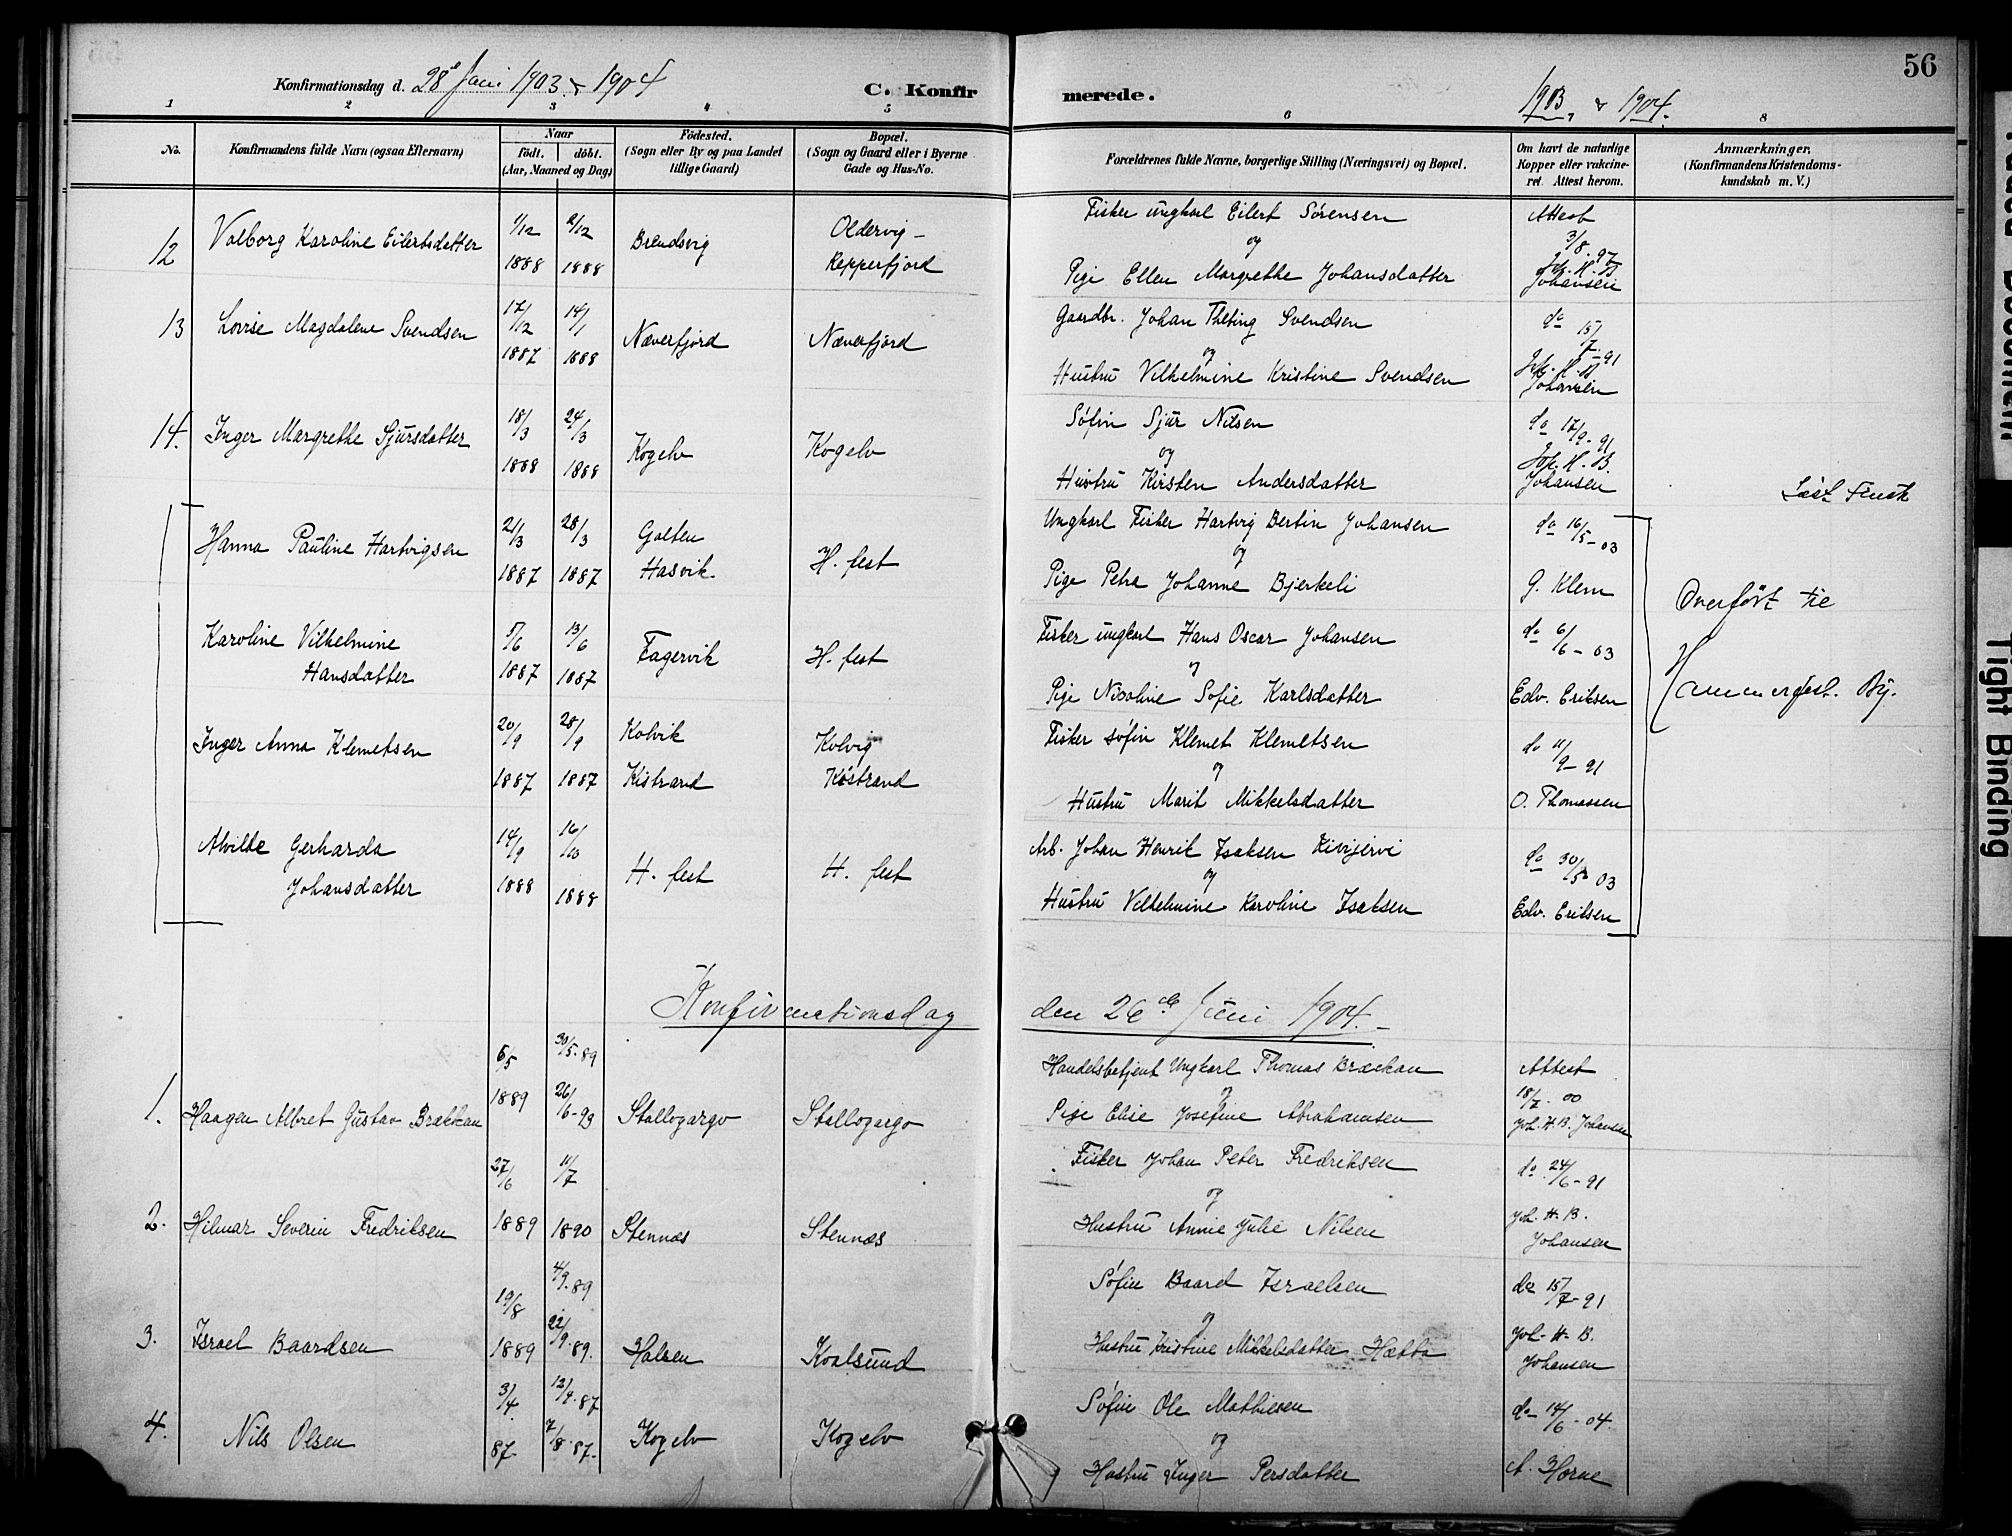 56
Konfirmationsdag d. 28de Juni 1903 & 1904
C. Konfirmerede.
1903, & 1904.
1 2 3 4 5 6 8
No.
Konfirmandens fulde Navn (ogsaa Efternavn)
Naar
födt. döbt.
(Aar, Maaned og Dag)
Födested.
(Sogn eller By og paa Landet
tillige Gaard)
Bopæl.
(Sogn og Gaard eller i Byerne
Gade og Hus-No.
Forældrenes fulde Navne, borgerlige Stilling (Næringsvei) og Bopæl.
Om havt de naturlige
Kopper eller vakcine-
ret. Attest herom.
Anmærkninger,
(Konfirmandens Kristendoms-
kundskab m. V.)
12 Valborg Karoline Eilertsdatter
1/12 1888
2/12 1888
Brendsvig
Oldervig-
Repperfjord
Fisker ungkarl Eilert Sørensen
og
Pige Ellen Margrethe Johansdatter
Attest
3/8. 97
Joh. H. B.
Johansen
13 Lovise Magdalene Svendsen
17/12 1887
14/1 1888
Næverfjord
Næverfjord
Gaardbr. Johan Theting Svendsen
og
Hustru Vilhelmine Kristine Svendsen
do 15/7-91
Joh. H. B.
Johansen
14. Inger Margrethe Sjursdatter
18/3 1888
24/3 1888
Kogelv
Kogelv
Søfin Sjur Nilsen
og
Hustru Kirsten Andersdatter
do 17/9-91
Joh. H. B.
Johansen
Læst Finsk
Hanna Pauline Hartvigsen
21/3 1887
28/3 1887
Galten
Hasvik
H. fest
Ungkarl Fisker Hartvig Bertin Johansen
og
Pige Petra Johanne Bjerkeli
do 16/5-03
G. Klem
Overført til
Hammerfest By.
Karoline Vilhelmine
Hansdatter
5/6 1887
13/6 1887
Fagervik
H. fest
Fisker ungkarl Hans Oscar Johansen
og
Pige Nicoline Sofie Karlsdatter
do 6/6-03
Edv. Eriksen
Inger Anna Klemetsen
20/9 1887
28/9 1887
Kolvik
Kistrand
Kolvig
Kistrand
Fisker søfin Klemet Klemetsen
og
Hustru Marit Mikkelsdatter
do 11/9-91
O. Thomassen
Alvilde Gerharda
Johansdatter
14/9 1888
16/10 1888
H. fest
H. fest
Arb. Johan Henrik Isaksen Kivijervi
og
Hustru Vilhelmine Karoline Isaksen
do 30/5 03
Edv. Eriksen
Konfirmationsdag den 26de Juni 1904.-
1. Haagen Albret Gustav Brækkan
6/5 1889
30/5.89
26/6-93
Stallogargo
Stallogargo
Handelsbetjent Ungkarl Thomas Brækkan
og
Pige Elise Josefine Abrahamsen
Attest
18/7. 00
Joh. H. B. Johansen
2. Hilmar Severin Fredriksen
27/6 1889
11/7 1890
Stennæs
Stennæs
Fisker Johan Peter Fredriksen
og
Hustru Annie Julie Nilsen
do 24/6-91
Joh. H. B.
Johansen
3. Israel Baardsen
19/8 1889
4/9.89
22/9.89.
Halsen
Kvalsund
Søfin Baard Israelsen
og
Hustru Kristine Mikkelsdatter Hætta
do 15/7-91
Joh. H. B.
Johansen
4. Nils Olsen
3/4. 87
13/4.87
7/8.87.
Kogelv
Kogelv
Søfin Ole Mathisen
og
Hustru Inger Persdatter
do 14/6-04.
A. Horne
Tight Binding